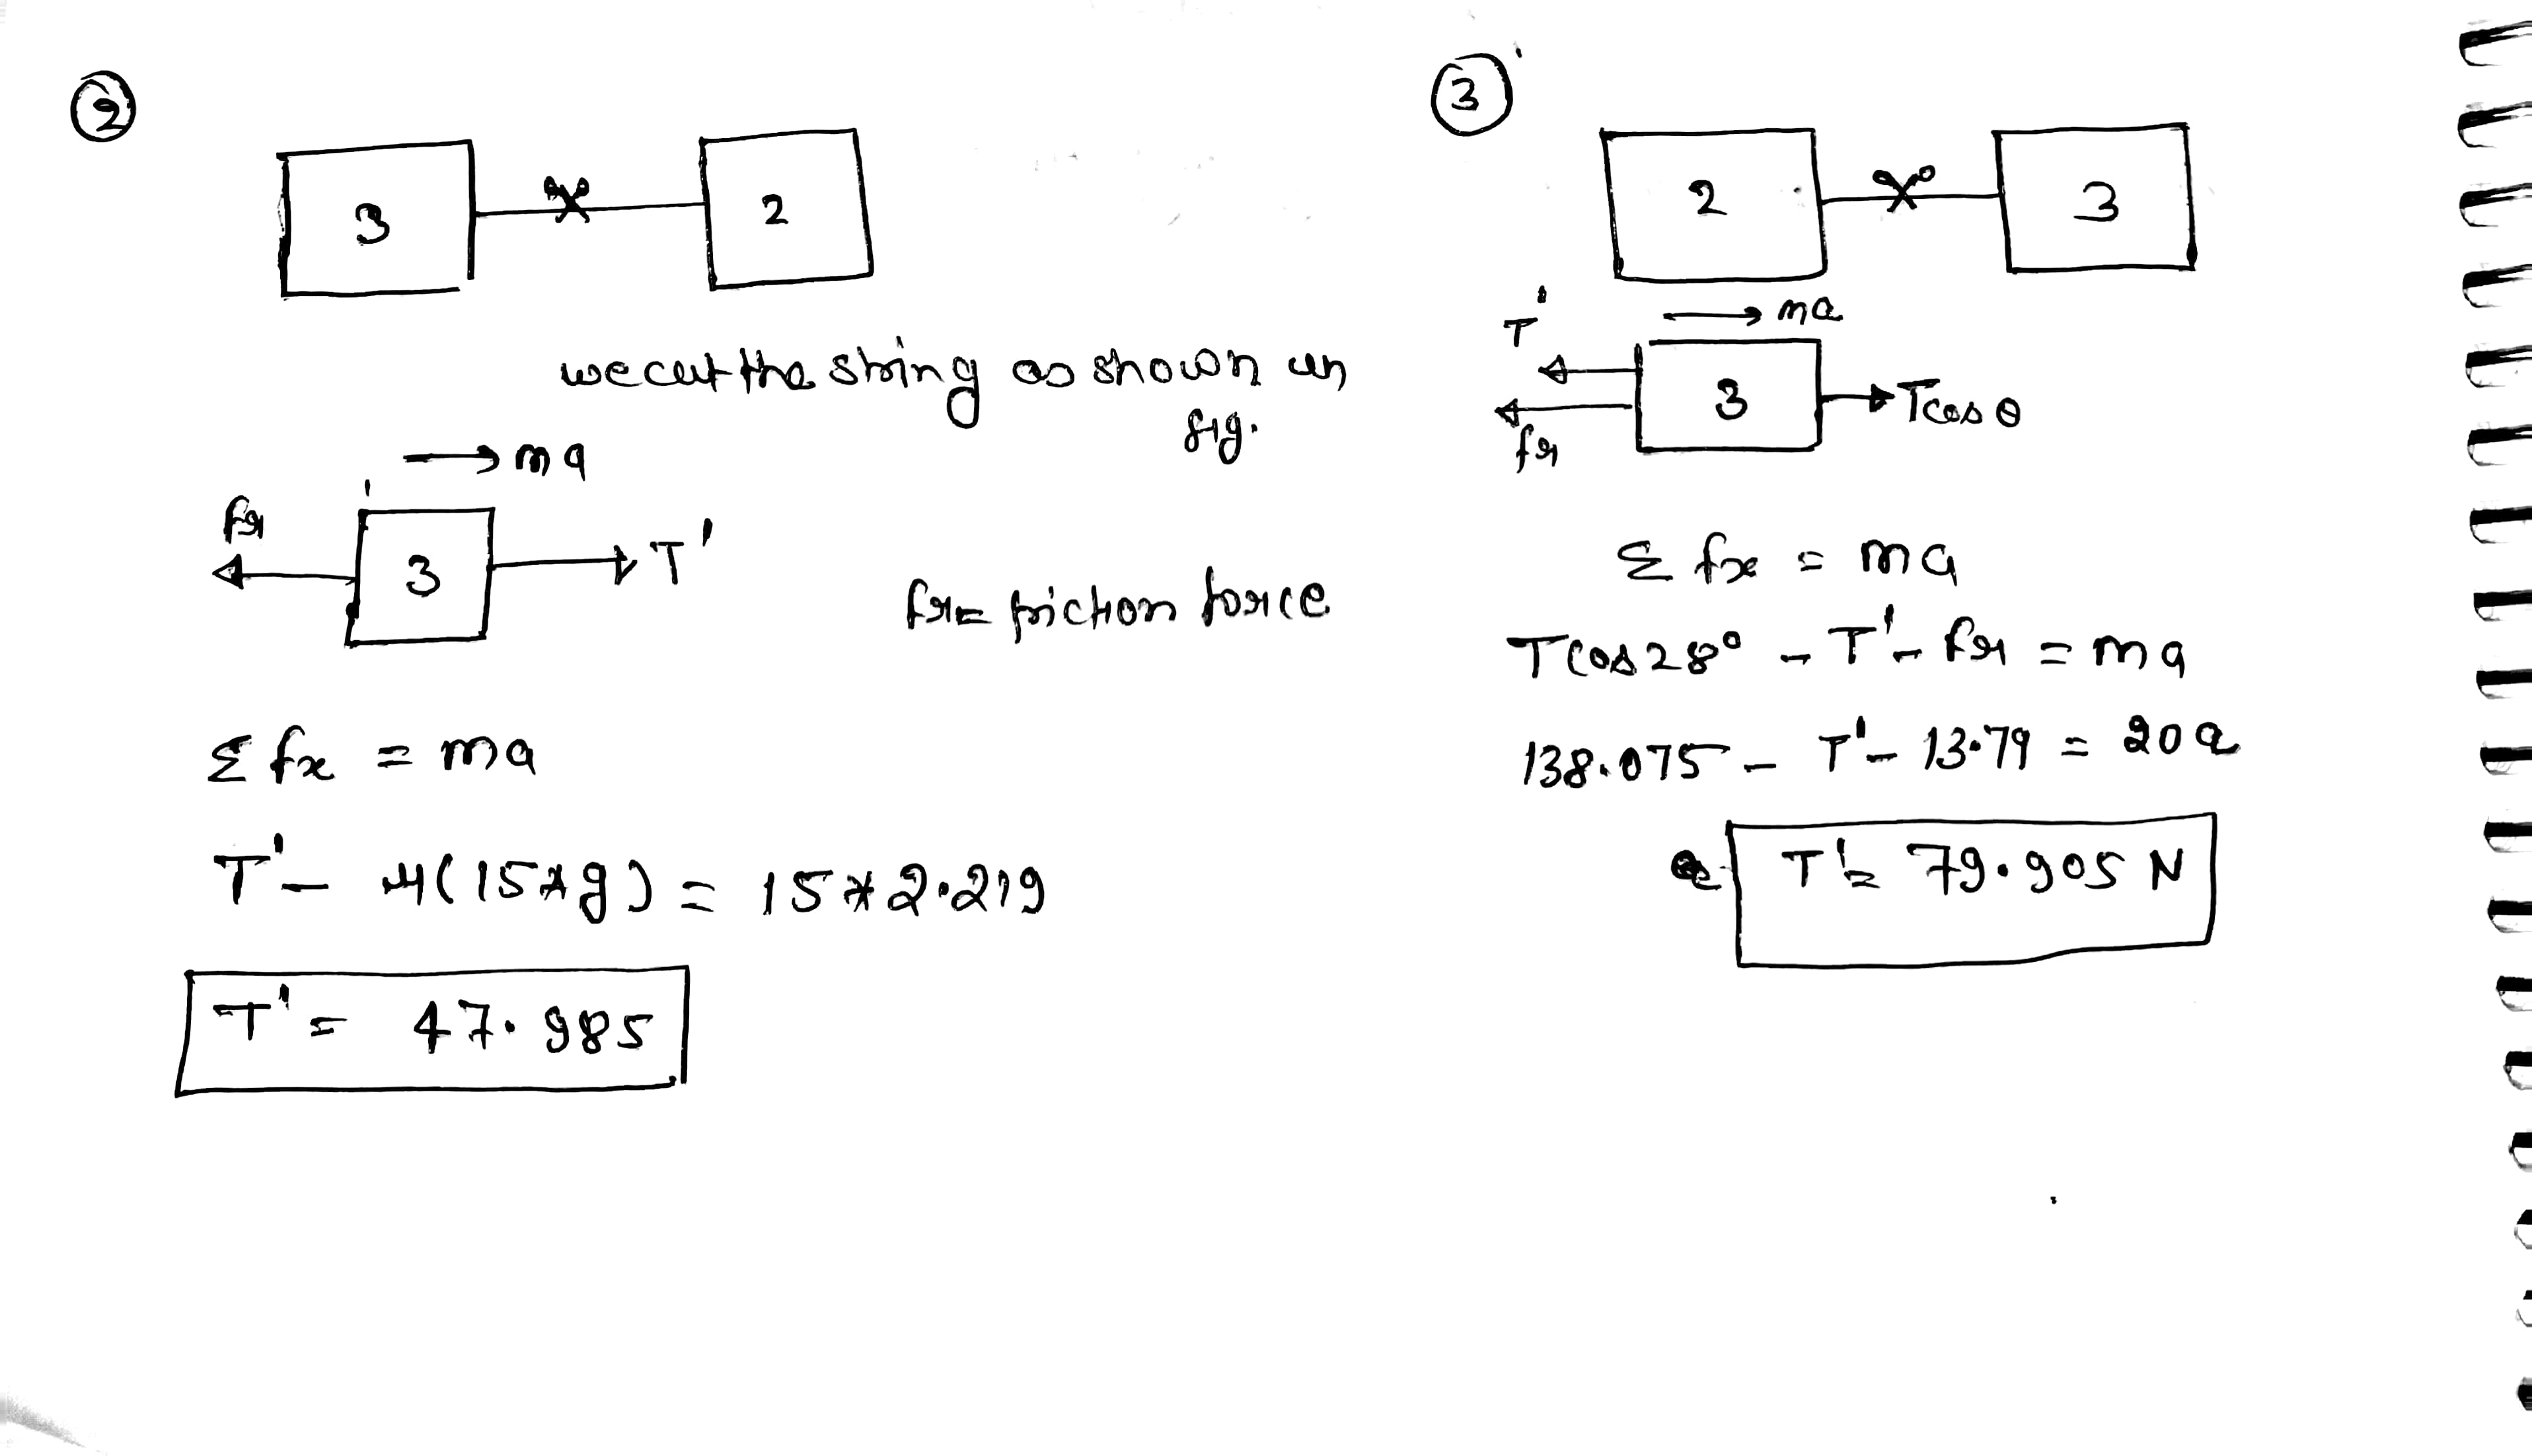 ②
3 2
we cut the string as shown in
fig.
→ ma
fr 3 T'
fr = friction force
Σfx = ma
T' - μ(15*g) = 15*2.219
T' = 47.985
③
2 3
→ ma
T'
fr 3 Tcosθ
Σfx = ma
Tcos28° - T' - fr = ma
138.075 - T' - 13.79 = 20a
T' = 79.905 N